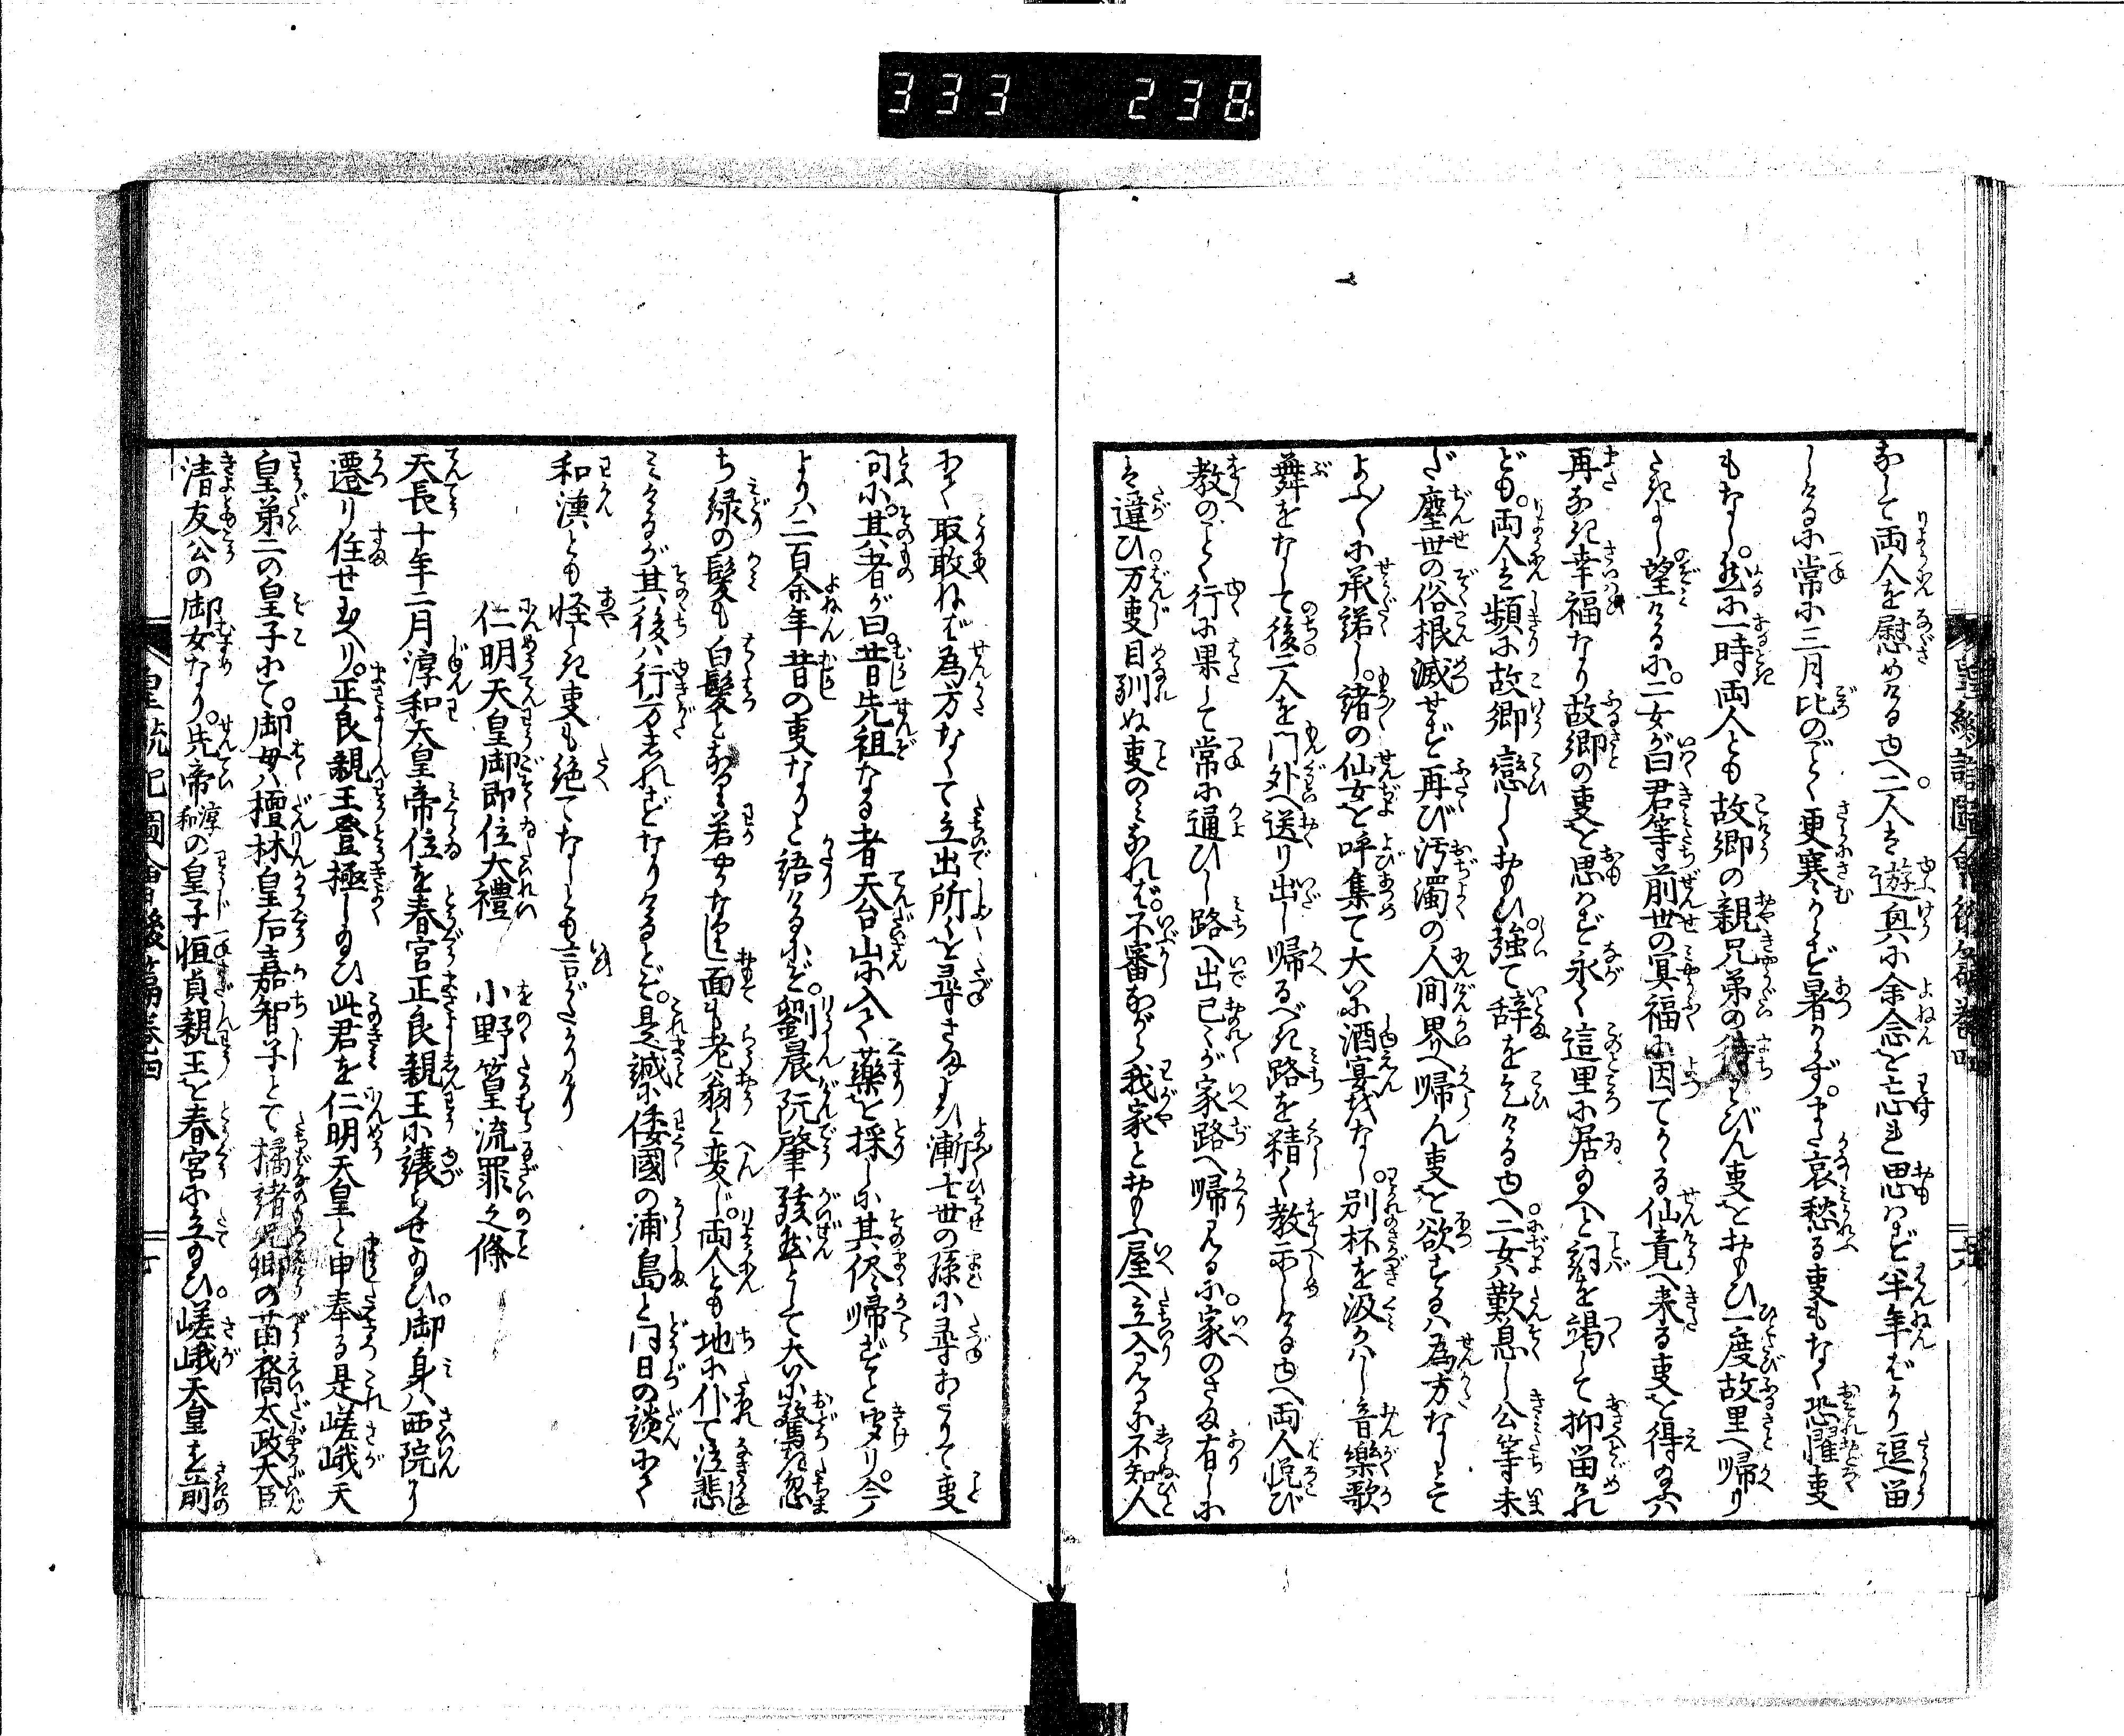 333 238
なして両人を慰めける内へ二人は遊興に余念を忘れ思はず半年ばかり逗畄
しけるに常に三月比のごとく更寒からず暑からず。また哀愁る叓もなく恐懼叓
もなし。然に一時両人とも故郷の親兄弟の待とびん叓をおもひ一度故里へ帰り
たきよし望けるに。二女が曰君等前世の冥福に因てかゝる仙境へ来る叓を得給ふハ
再なき幸福なり故郷の叓を思はず永く這里に居給へと詞を竭して抑畄けれ
ども。両人は頻に故郷恋しくおもひ強て辞を乞ける内へ二女ハ歎息し公等未
だ塵世の俗根滅せず再び汚濁の人間界へ帰ん叓を欲するハ為方なしとて
よふ〳〵に承諾し。諸の仙女を呼集て大に酒宴をなし。別杯を汲かハし音樂歌
舞をなして後二人を門外へ送り出し帰るべき路を精く教示しける内へ両人悦び
教のごとく行に果して常に通ひし路へ出已々が家路へ帰りみるに。家のさま有しに
は違ひ。万叓目馴ぬ叓のみなれば。不審ながら我家とおもふ屋へ立入みるに不知人
にて取敢ねば為方なくて立出所々を尋さまよひ漸七世の孫に尋あたりて叓
問に。其者が曰。昔先祖なる者天台山に入て薬を採しに其侭帰ずと聞り。今
よりハ二百余年昔の叓なりと語けるにぞ。劉晨阮肇駭然として大に驚き忽
ち緑の髪も白髪となり若やかなりし面も老翁と変じ。両人とも地に仆て泣悲
みけるが其後ハ行方しれずなりけるとぞ。是誠に倭國の浦島と同日の談にて
和漢とも怪しき叓も絶てなしとも言がたかりけり
仁明天皇御即位大禮　小野篁流罪之條
天長十年二月淳和天皇帝位を春宮正良親王に譲らせ給ひ。御身ハ西院に
遷り住せ玉へり。正良親王登極し給ひ此君を仁明天皇と申奉る是嵯峨天
皇第二の皇子にて。御母ハ檀林皇后嘉智子とて橘諸兄卿の苗裔太政大臣
清友公の御女なり。先帝淳和の皇子恒貞親王を春宮に立給ひ。嵯峨天皇を前
皇統記圖會後篇巻四